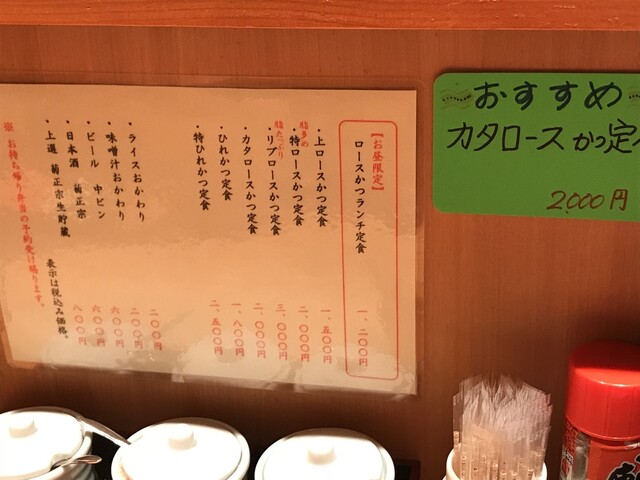 【お昼限定】
ロースかつランチ定食 一、二〇〇円
・上ロースかつ定食 一、五〇〇円
脂多め
・特ロースかつ定食 二、〇〇〇円
脂たっぷり
・リブロースかつ定食 三、〇〇〇円
・カタロースかつ定食 二、〇〇〇円
・ひれかつ定食 一、八〇〇円
・特ひれかつ定食 二、五〇〇円
・ライスおかわり 二〇〇円
・味噌汁おかわり 二〇〇円
・ビール 中ビン 六〇〇円
・日本酒 菊正宗 六〇〇円
・上選 菊正宗生貯蔵 八〇〇円
表示は税込み価格。
※お持ち帰り弁当の予約受け賜ります。
おすすめ
カタロースかつ定
2,000円